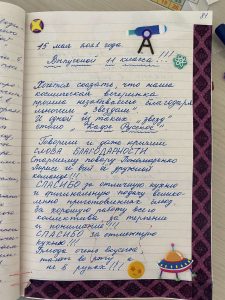 81
15 мая 2021 года
Выпускной 11 класса!!!
Хочется сказать, что наша
космическая вечеринка
прошла незабываемо благодаря
многим „звёздам".
И одной из таких „звёзд"
стало „Кафе Русское".
Говорим и даже кричим
СЛОВА БЛАГОДАРНОСТИ
Старшему повару Пономаренко
Ларисе и всей её дружной
команде!!!
СПАСИБО за отличную кухню
и оригинальную подачу велико-
лепно приготовленных блюд
за хорошую работу всего
коллектива, за терпение
и понимание!!!
СПАСИБО за отменную
кухню!!!
Блюда очень вкусные,
тают во рту, а
не в руках!!!